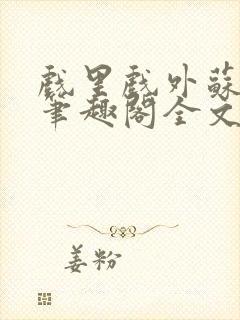 戲里戲外蘇
筆趣閣全文
姜粉